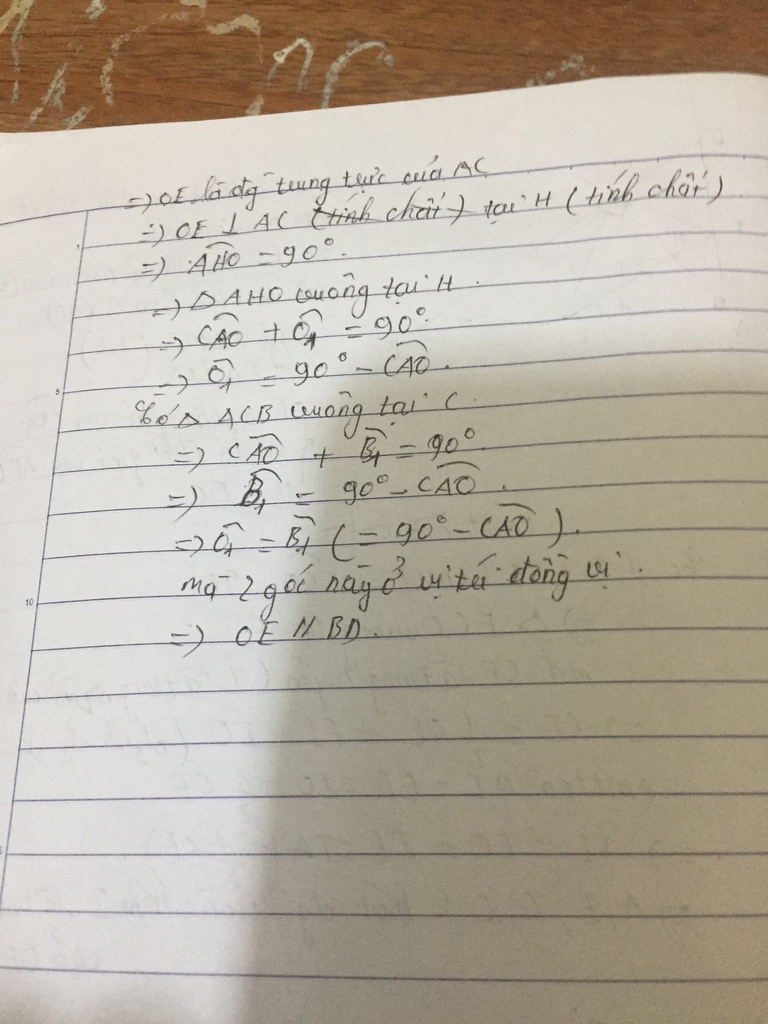 =) OE là đg̃ trung trực của AC
=) OE ⊥ AC (tính chất) tại H (tính chất)
=) AHO = 90°.
=) △ AHO vuông tại H.
=) CAO + O1 = 90°.
=) O1 = 90° - CAO.
5
Có △ ACB vuông tại C.
=) CAO + B1 = 90°
=) B1 = 90° - CAO.
=) O1 = B1 (= 90° - CAO).
mà 2 góc này ở vị trí đồng vị.
10
=) OE // BD.